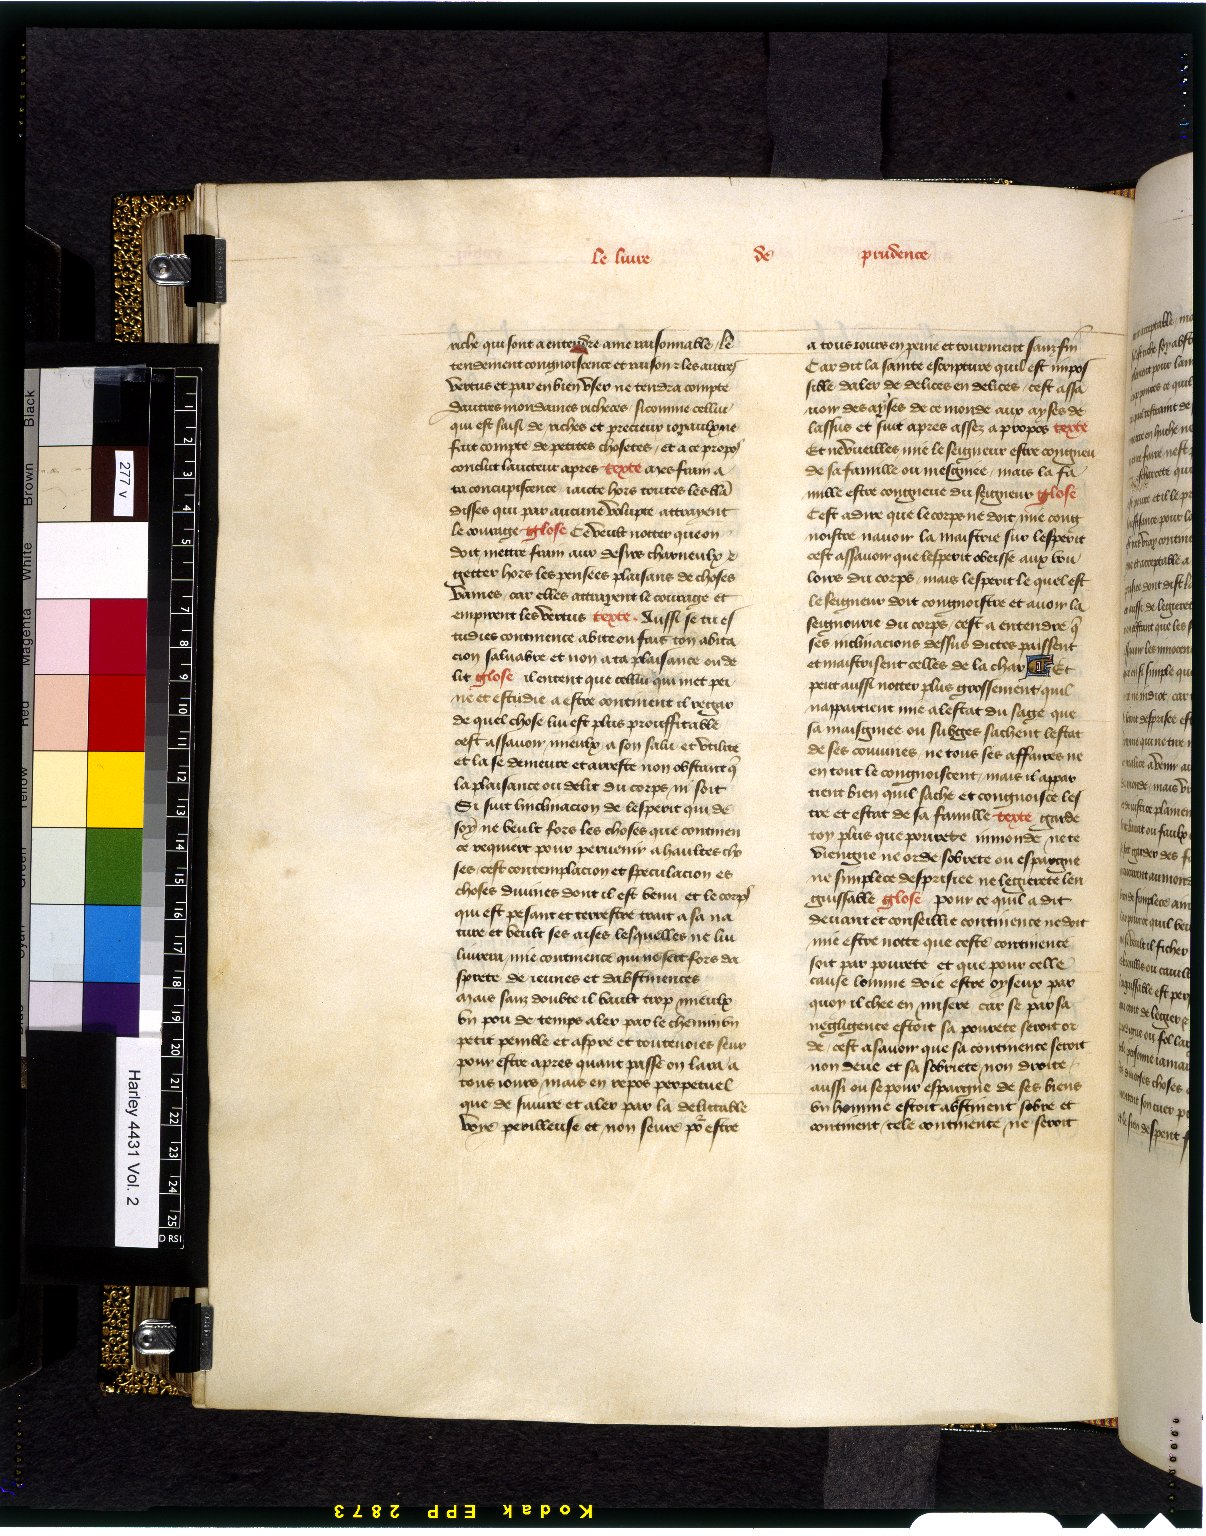 le liure de prudence
riche qui sont a entendre ame raisonnable / lē
tendement congnoiscence et raison z les autres
vertus et par en bien vser ne tendra compte
dautres mondaines richeces sicomme cellui
qui est saisi de riches et precieux ioyaulx ne
fait compte de petites chosetes / et a ce propos
conclut laucteur apres texte mes frain a
ta concupiscence iaicte hors toutes les blā
disses qui par aucune volupte attrayent
le courage glose Ce veult notter que on
doit mettre frain aux desirs charneulx z
getter hors les pensees plaisans de choses
vaines / car elles attrayent le courage et
empirent les vertus texte Aussi se tu es
tudies continence abite ou fais ton abita
cion saluable et non a ta plaisance ou de
lit glose il entent que cellui qui met pei
ne et estudie a estre continent il regar
de quel chose lui est plus prouffitable
cest assauoir mieulx a son salu et vtilite
et la se demeure et arreste non obstant q̄
la plaisance ou delit du corps ny soit
Si suit linclinacion de lesperit qui de
soy ne veult fors les choses que continen
ce requiert pour peruenir a haultes cho
ses / cest contemplacion et speculacion es
choses diuines dont il est venu et le corps
qui est pesant et terrestre trait a sa na
ture et veult ses aises lesquelles ne lui
liurera mie continence qui ne sert fors da
sprete de ieunes et dabstinences
mais sanz doubte il vault trop mieulx
vn pou de temps aler par le chemin vn
petit penible et aspre et toutevoies seur
pour estre apres quant passe on lara a
tous iours mais en repos perpetuel
que de suiure et aler par la delittable
voye perilleuse et non seure po᷑ estre
a tous iours en peine et tourment sanz fin
Car dit la sainte escripture quil est impos
sible daler de delices en delices / cest assa
uoir des ayses de ce monde aux ayses de
lassus et suit apres assez a propos texte
Et ne vueilles mie le seigneur estre congneu
de sa famille ou mesgniee / mais la fa
mille estre congneue du seigneur glose
Cest a dire que le corps ne doit mie cong
noistre nauoir la maistrie sur lesperit
cest assauoir que lesperit obeisse aux vou
loirs du corps / mais lesperit le quel est
le seigneur doit congnoistre et auoir la
seigneurie du corps / cest a entendre q̄
ses inclinacions dessus dictes puissent
et maistrisent celles de la char Et
peut aussi notter plus grossement quil
nappartient mie a lestat du sage que
sa maisgniee ou subges sachent lestat
de ses couuines / ne tous ses affaires ne
en tout le congnoiscent / mais il appar
tient bien quil sache et congnoisce les
tre et estat de sa famille texte garde
toy plus que pourete inmonde / ne te
viengne ne orde sobrete ou espargne
ne simplece desprisiee ne legierete len
guissable glose pour ce quil a dit
deuant et conseillie continence ne doit
mie estre notte que ceste continence
soit par pourete et que pour celle
cause lomme doie estre oyseux par
quoy il chee en misere car se par sa
negligence estoit sa pourete seroit or
de / cest asauoir que sa continence seroit
non deue et sa sobriete non droite
aussi ou se pour espargne de ses biens
vn homme estoit abstinent sobre et
continent / tele continence ne seroit
277 v
Harley 4431 Vol. 2
Black
Brown
White
Magenta
Red
Yellow
Green
Cyan
1
2
3
4
5
7
8
9
10
11
12
13
14
15
16
17
18
19
20
21
22
23
24
25
Kodak EPP 2873